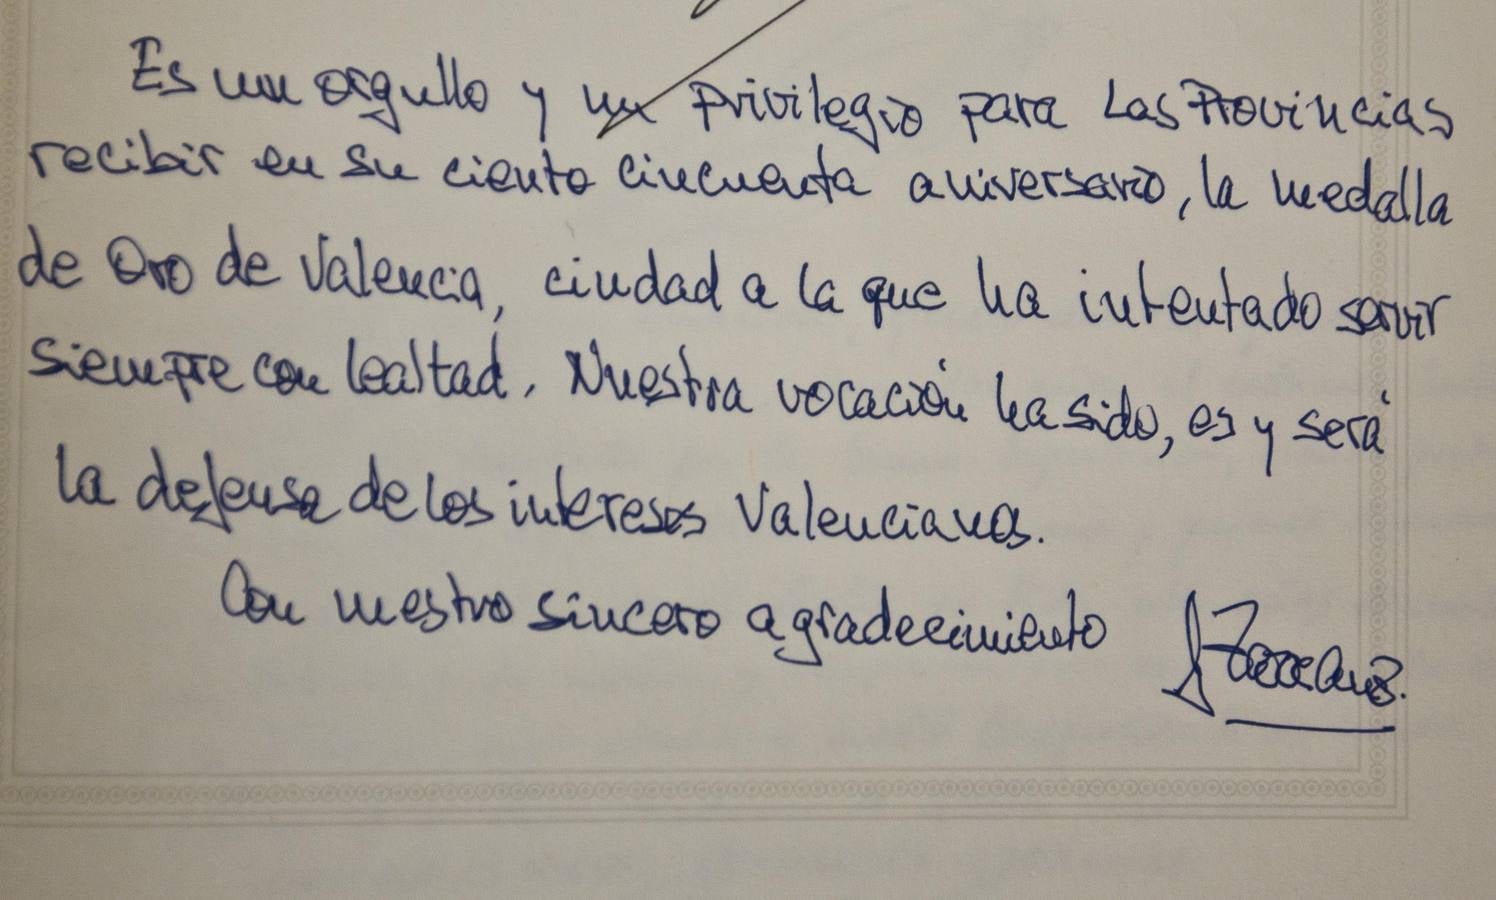 Es un orgullo y un privilegio para Las Provincias
recibir en su ciento cincuenta aniversario, la medalla
de Oro de Valencia, ciudad a la que ha intentado servir
siempre con lealtad. Nuestra vocación ha sido, es y será
la defensa de los intereses Valencianos.
Con nuestro sincero agradecimiento